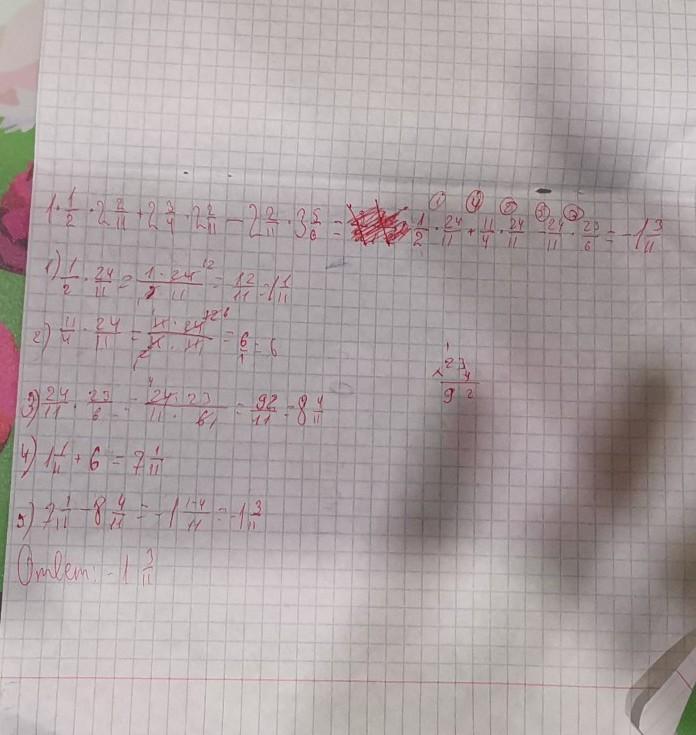 1·1/2 · 2 2/11 + 2 3/4 · 2 2/11 − 2 2/11 · 3 5/6 = 1/2 · 24/11 + 11/4 · 24/11 − 24/11 · 23/6 = −1 3/11
1) 1/2 · 24/11 = 1·24/2·11 = 12/11 = 1 1/11
2) 11/4 · 24/11 = 11·24/4·11 = 6/1 = 6
23
× 4
92
3) 24/11 · 23/6 = 24·23/11·6 = 92/11 = 8 4/11
4) 1 1/11 + 6 = 7 1/11
5) 7 1/11 − 8 4/11 = −1 1−4/11 = −1 3/11
Ответ: −1 3/11